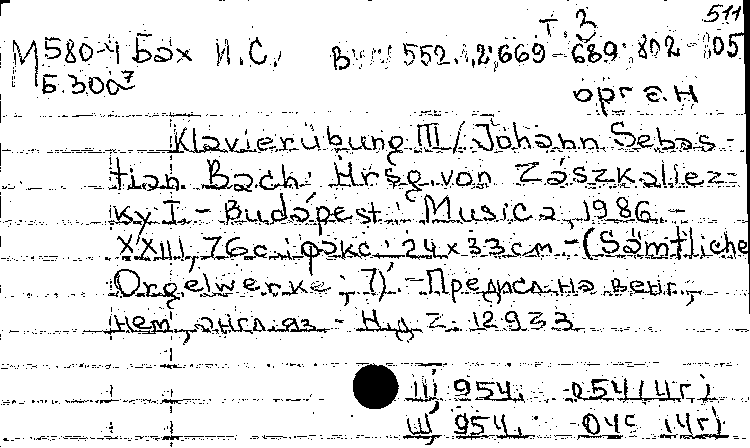 511
т. 3
М 580-4 Бах И.С. BWV 552.1,2; 669-689; 802-805
Б.300⁷
орг з.н
Klavierübung III / Johann Sebas-
tian Bach: Hrsg. von Zászkaliez-
ky T. - Budapest: Musica, 1986. -
XXIII, 76 с.: факс.: 24 x 33 см - (Sämtliche
Orgelwerke; 7). - Предисл. на венг.,
нем., англ. яз. - Н.д. Z. 12933
Щ 954. -054 (4г)
Щ 954. -04с (4г)